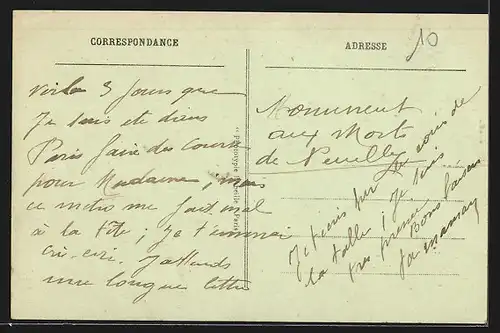 CORRESPONDANCE
ADRESSE
10
voila 3 jours que
Je suis ete dans
Paris faire des course
pour Madame ; mais
ce metro me fait mal
à la tête ; Je t'
cri-cri. J'attends
une longue lettre
Monument
aux Morts
de Neuilly
Je t'ecris sur le coin de
la table ; Je suis
tres presse
Bons baisers
Ta maman